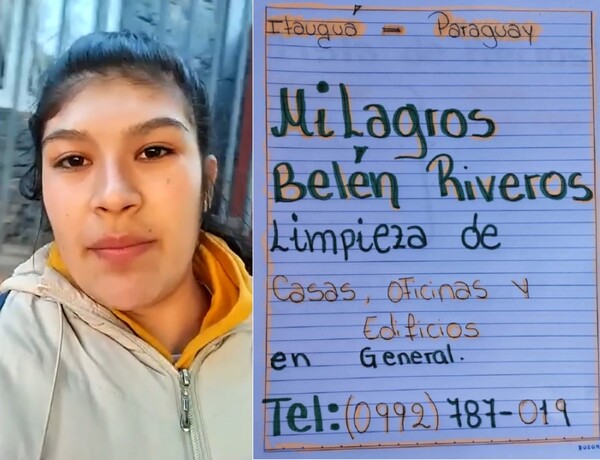 Itauguá - Paraguay
MiLagros
Belén Riveros
Limpieza de
Casas, oficinas y
Edificios
en General.
Tel: (0992) 787-019